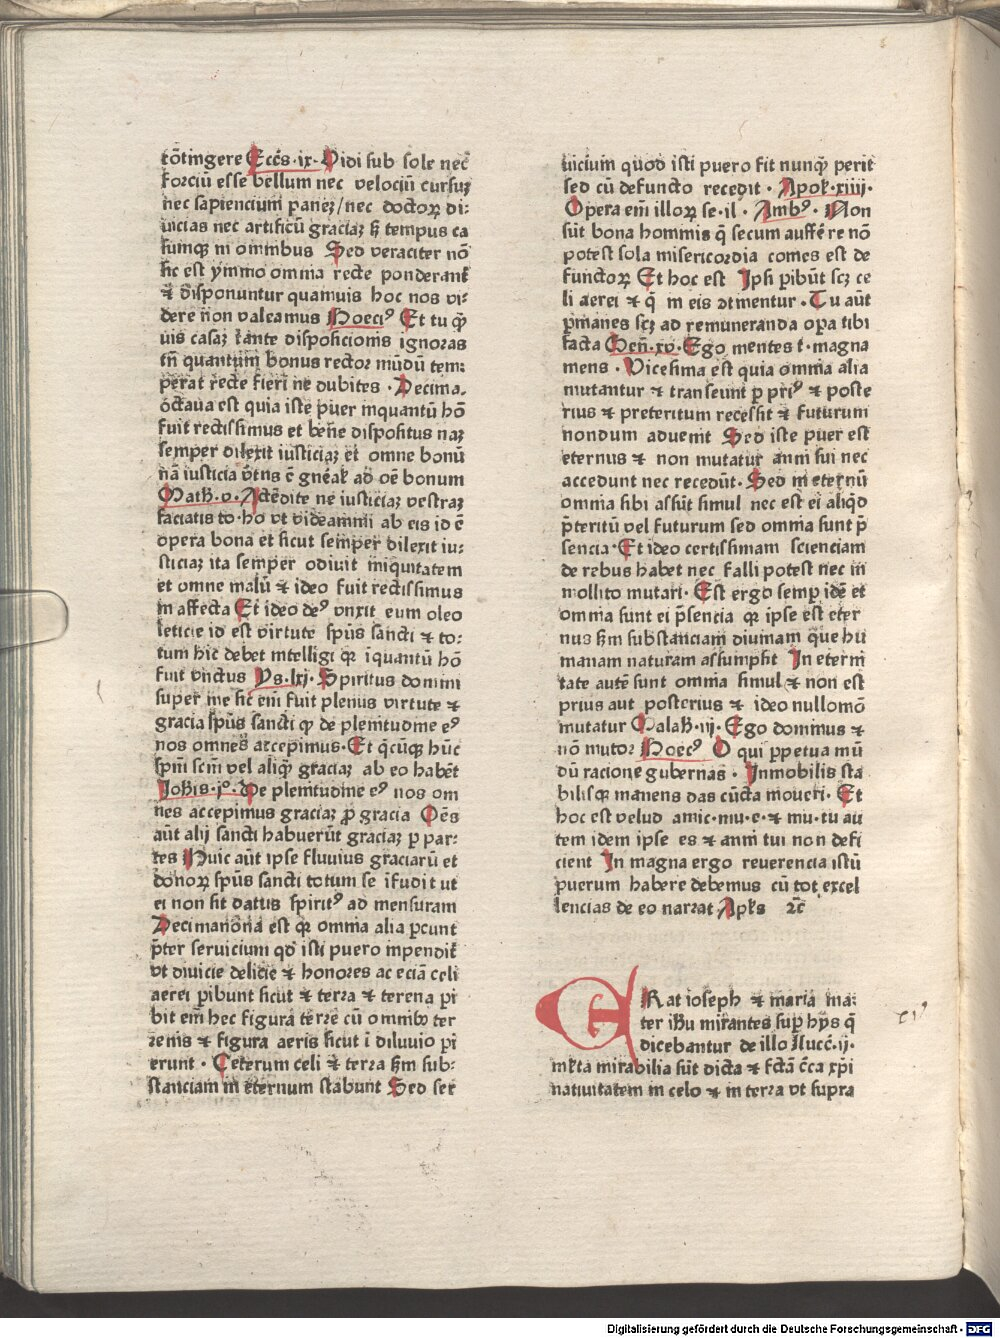 cōtingere Ecc̄s·ix· Vidi sub sole nec̄
forciū esse bellum nec velociū cursuʒ
nec sapiencium paneʒ/nec doctoꝝ di⸗
uicias nec artificū graciaʒ sʒ tempus ca
sumqʒ in omnibus Sed veraciter nō
sic est ymmo omnia recte ponderant̄
⁊ disponuntur quamuis hoc nos vi⸗
dere non valeamus Boeciꝰ Et tu qͣ̄
uis casaʒ tante dispositionis ignoras
tn̄ quantum bonus rector mūdū tem⸗
perat recte fieri ne dubites · Decima
octaua est quia iste puer inquantū hō
fuit rectissimus et bene dispositus naʒ
semper dilexit iusticiaʒ et omne bonū
nā iusticia v̄tns ē gn̄eal̄ ad oē bonum
Math̄·v· Attēdite ne iusticiaʒ vestraʒ
faciatis co·ho vt videamini ab eis id ē
opera bona et sicut semper dilexit iu⸗
sticiaʒ ita semper odiuit iniquitatem
et omne malū ⁊ ideo fuit rectissimus
in affecta Et ideo deꝰ vnxit eum oleo
leticie id est virtute sp̄us sancti ⁊ to⸗
tum hic debet intelligi qꝛ īquantū hō
fuit vnctus Ps·lxi· Spiritus domini
super me sic̄ em̄ fuit plenus virtute ⁊
gracia sp̄us sancti qꝛ de plenitudine eꝰ
nos omnes accepimus· Et q̄cūqʒ hūc
sp̄m scm̄ vel aliqͣ̄ graciaʒ ab eo habēt
Joh̄is·jº· De plenitudine eꝰ nos om
nes accepimus graciaʒ ꝓ gracia Oēs
aūt alij sancti habuerūt graciaʒ ꝑ par⸗
tes Huic aūt ipse fluuius graciarū et
donoꝝ sp̄us sancti totum se īfudit ut
ei non sit datus spiritꝰ ad mensuram
Decimanona est qꝛ omnia alia ꝑeunt
p̄ter seruicium qd̄ isti puero inpendit̄
vt diuicie delicie ⁊ honores ac eciā celi
aerei peribunt sicut ⁊ terra ⁊ terena pi
bit em̄ hec figura terre cū omnibꝰ ter
renis ⁊ figura aeris sicut ī diluuio pi
erunt · Ceterum celi ⁊ terra sʒm sub⸗
stanciam in eternum stabunt Sed ser
uicium quod isti puero fit nunqͣ̄ perit
sed cū defuncto recedit · Apoc̄·xiiii·
Opera em̄ illoꝝ se·il· Ambꝰ· Non
sūt bona hommis q̄ secum aufferre nō
potest sola misericordia comes est de
functoꝝ Et hoc est Jpsi ꝑibūt scʒ ce
li aerei ⁊ q̄ in eis ɔtinentur · Tu aūt
ꝑmanes scʒ ad remuneranda oꝑa tibi
facta Gen̄·xv· Ego mentes t·magna
mens · Vicesima est quia omnia alia
mutantur ⁊ transeunt ꝑ priꝰ ⁊ poste
rius ⁊ preteritum recessit ⁊ futurum
nondum aduenit Sed iste puer est
eternus ⁊ non mutatur anni sui nec
accedunt nec recedūt· Sed in eternū
omnia sibi assūt simul nec est ei aliqd̄
p̄teritū vel futurum sed omnia sunt p̄
sencia· Et ideo certissimam scienciam
de rebus habet nec falli potest nec in
mollito mutari· Est ergo semꝑ idē et
omnia sunt ei p̄sencia qꝛ ipse est eter
nus sʒm substanciam diuinam que hu
manam naturam assumpsit Jn eterni
tate autē sunt omnia simul ⁊ non est
prius aut posterius ⁊ ideo nullomō
mutatur Malach̄·iij· Ego dominus ⁊
nō mutor Boecꝰ O qui ꝑpetua mū
dū racione gubernas · Jnmobilis sta
bilisqʒ manens das cūcta moueri· Et
hoc est velud amic·mu·e·⁊ mu·tu au
tem idem ipse es ⁊ anni tui non defi
cient Jn magna ergo reuerencia istū
puerum habere debemus cū tot excel
lencias de eo narrat Apl̄s ⁊c̄
ERat ioseph ⁊ maria ma⸗
ter ih̄u mirantes suꝑ hijs q̄
dicebantur de illo Lucē·ij·
ml̄ta mirabilia sūt dicta ⁊ fc̄tā c̄ca xp̄i
natiuitatem in celo ⁊ in terra vt supra
Digitalisierung gefördert durch die Deutsche Forschungsgemeinschaft - DFG